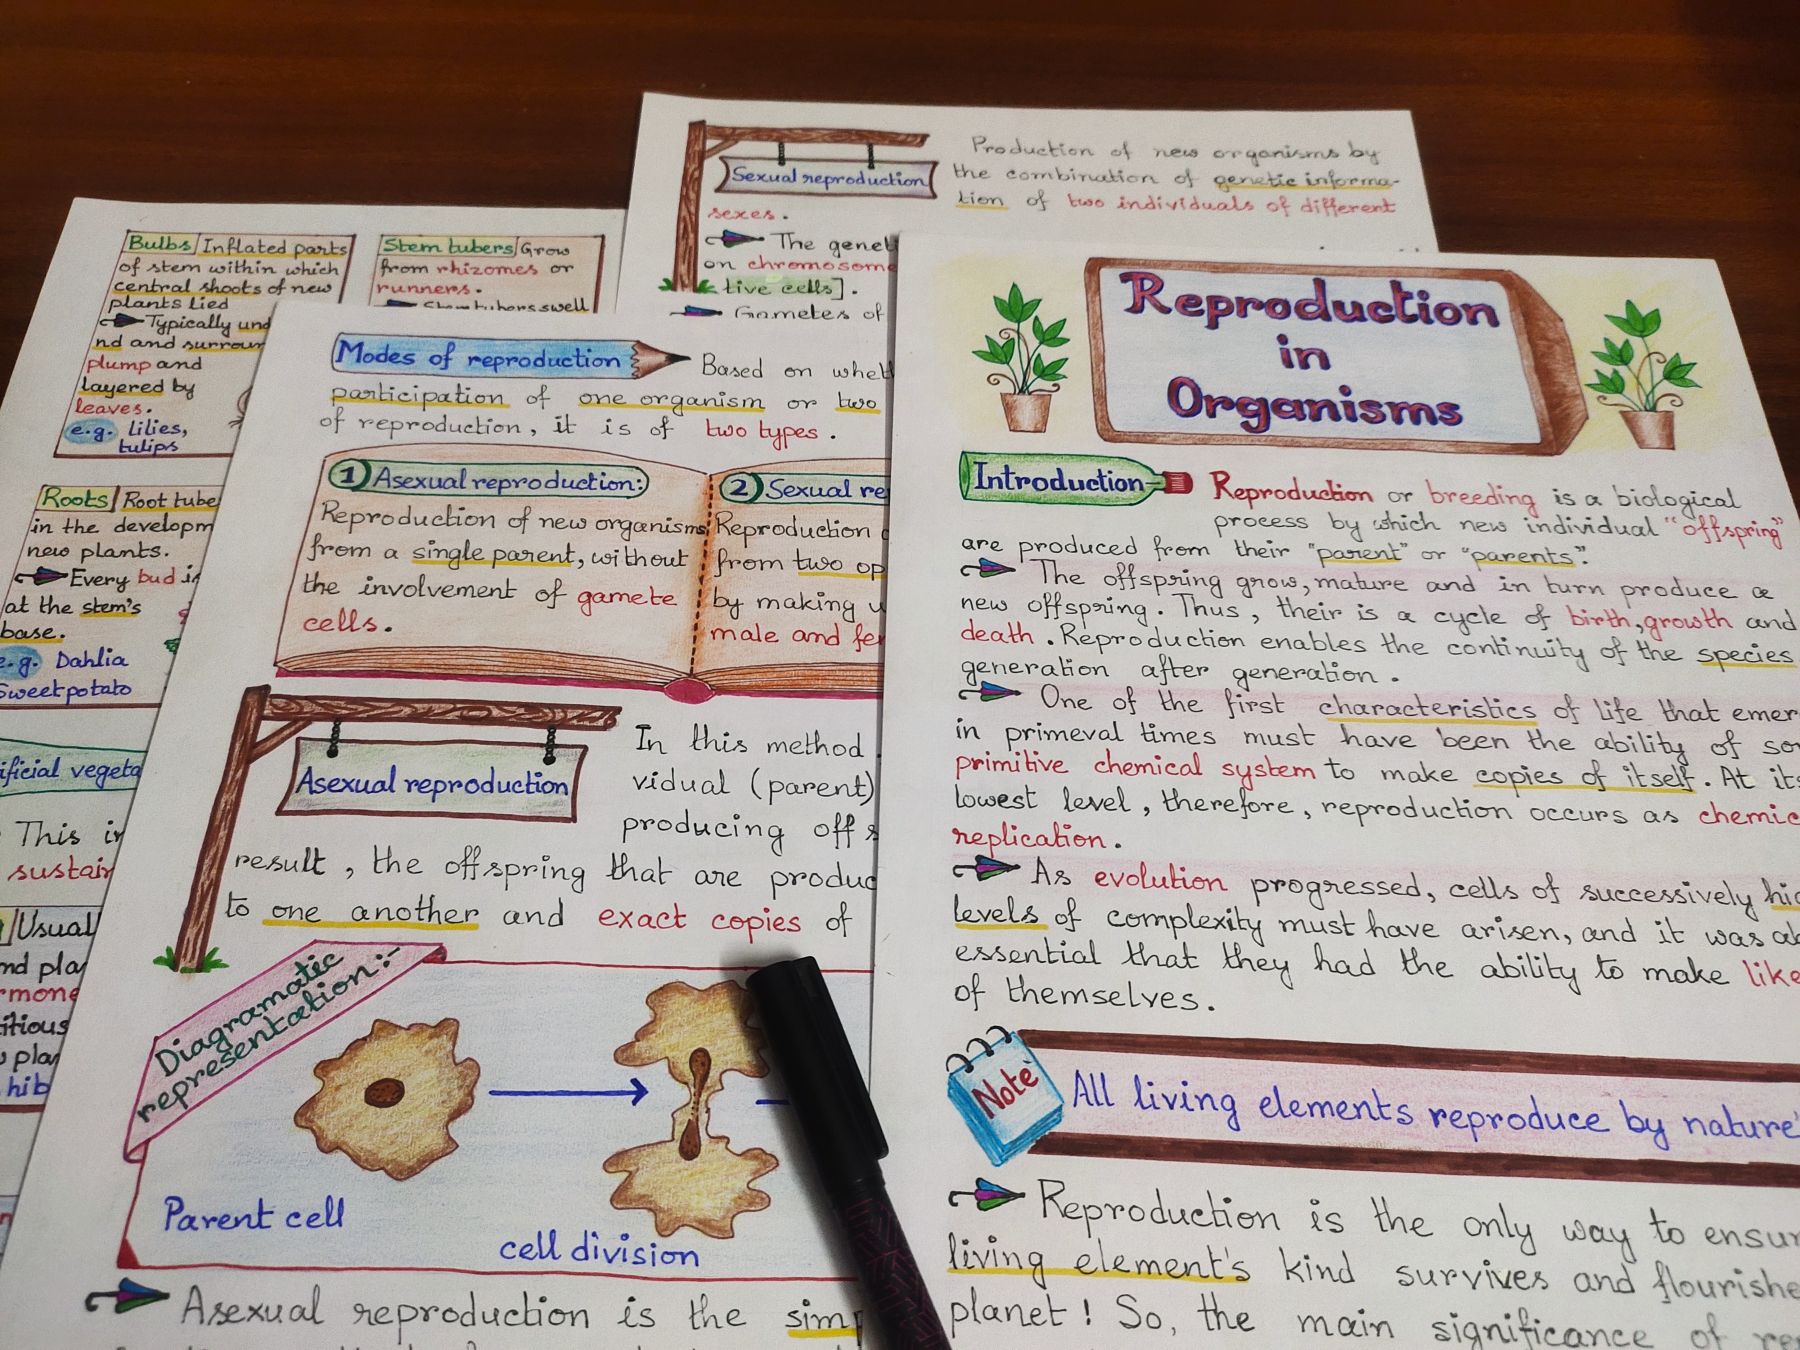 Production of new organisms by
Sexual reproduction
the combination of genetic informa-
tion of two individuals of different
sexes.
The genet
on chromosome
tive cells].
Gametes of
Bulbs Inflated parts
of stem within which
central shoots of new
plants lied
Typically und
nd and surroun
plump and
layered by
leaves.
e.g. Lilies,
tulips
Stem tubers Grow
from rhizomes or
runners.
Stem tubers swell
Roots Root tube
in the developm
new plants.
Every bud i
at the stem's
base.
e.g. Dahlia
Sweet potato
ificial vegeta
This i
sustain
Usual
nd pla
rmone
itious
plan
hib
Modes of reproduction Based on whet
participation of one organism or two
of reproduction, it is of two types.
1 Asexual reproduction:
Reproduction of new organisms
from a single parent, without
the involvement of gamete
cells.
2 Sexual re
Reproduction o
from two op
by making u
male and fe
Asexual reproduction
In this method
vidual (parent)
producing off s
result, the offspring that are produc
to one another and exact copies of
Diagramatic
representation:-
Parent cell
cell division
Asexual reproduction is the simp
Reproduction
in
Organisms
Introduction Reproduction or breeding is a biological
process by which new individual "offspring"
are produced from their "parent" or "parents".
The offspring grow, mature and in turn produce a
new offspring. Thus, their is a cycle of birth, growth and
death. Reproduction enables the continuity of the species
generation after generation.
One of the first characteristics of life that emer
in primeval times must have been the ability of so
primitive chemical system to make copies of itself. At its
lowest level, therefore, reproduction occurs as chemic
replication.
As evolution progressed, cells of successively hi
levels of complexity must have arisen, and it was ab
essential that they had the ability to make like
of themselves.
Note
All living elements reproduce by nature
Reproduction is the only way to ensur
living element's kind survives and flourishe
planet! So, the main significance of re